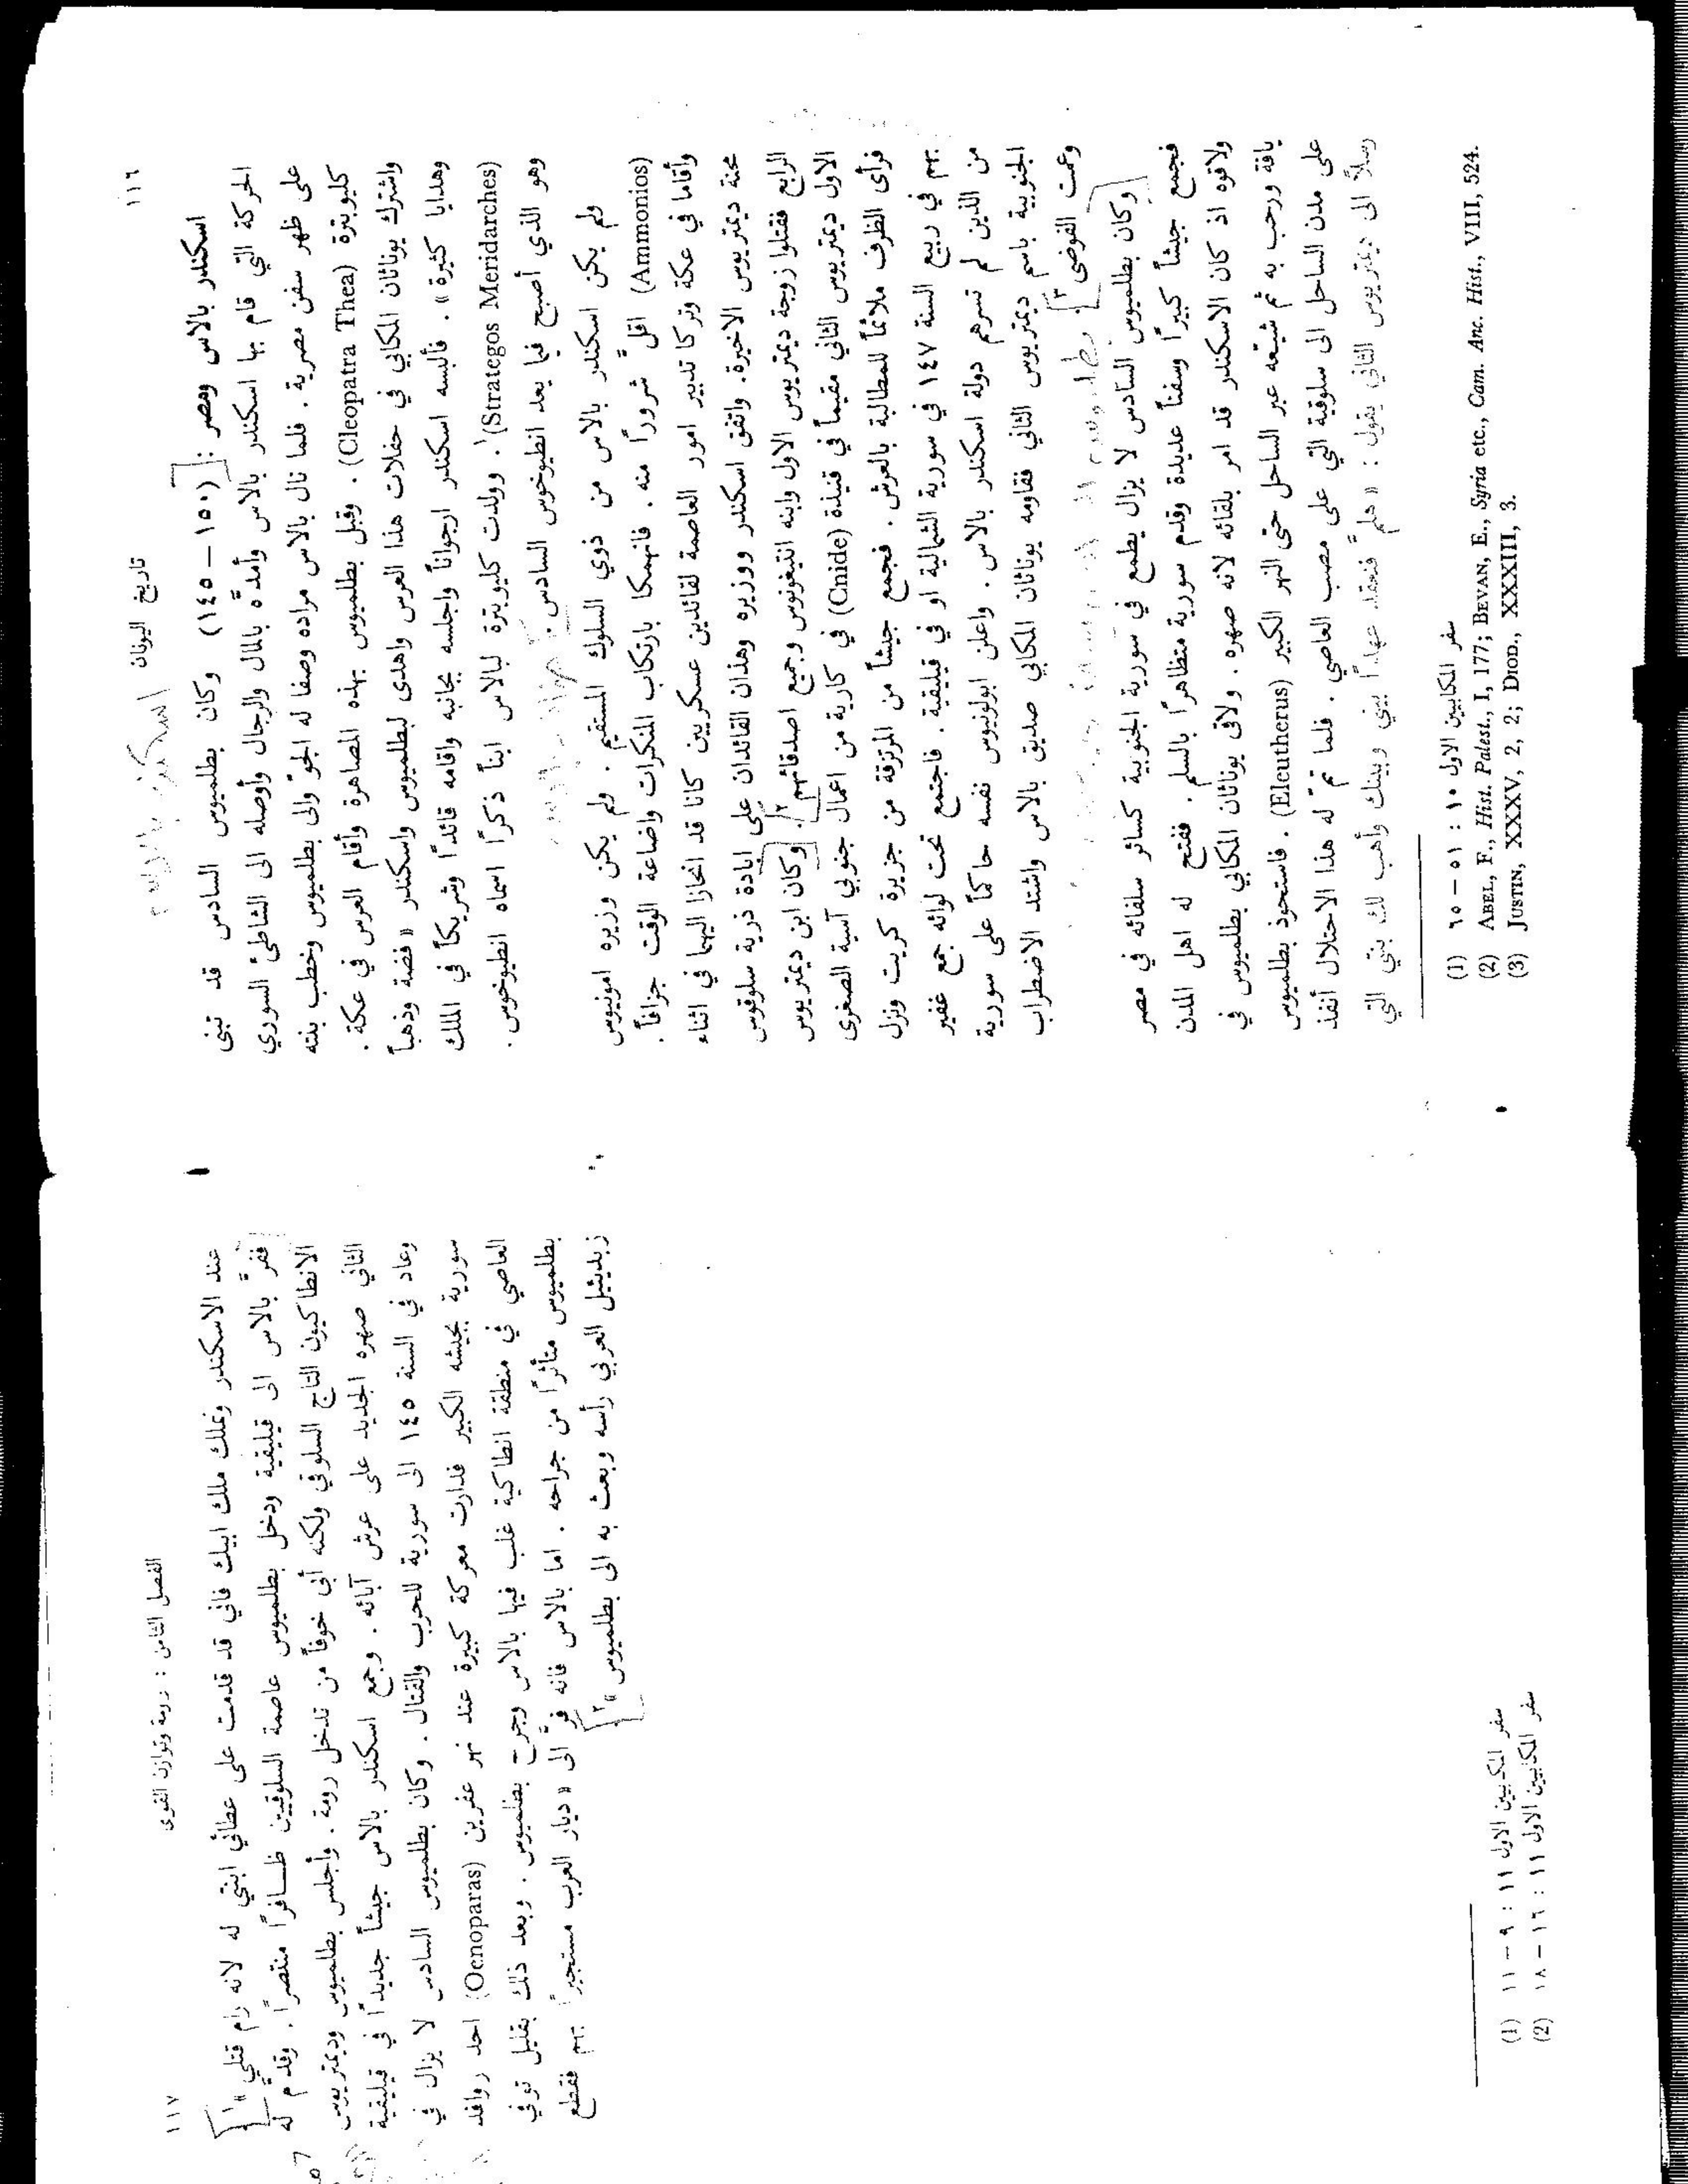 ١١٦
تاريخ اليونان
اسكندر بالاس ومصر : (١٥٠ – ١٤٥) وكان بطلميوس السادس قد تبنى
الحركة التي قام بها اسكندر بالاس وأمدَّه بالمال والرجال وأوصله الى الشاطئ السوري
على ظهر سفن مصرية . فلما نال بالاس مراده وصفا له الجوّ والى بطلميوس وخطب بنته
كليوبترة (Cleopatra Thea) . وقبل بطلميوس بهذه المصاهرة وأقام العرس في عكة .
واشترك يوناثان المكابي في حفلات هذا العرس واهدى لبطلميوس واسكندر « فضة وذهباً
وهدايا كثيرة » . فألبسه اسكندر ارجواناً واجلسه بجانبه واقامه قائداً وشريكاً في الملك
(Strategos Meridarches)١ . وولدت كليوبترة لبالاس ابناً ذكراً اسماه انطيوخوس .
وهو الذي أصبح فيما بعد انطيوخوس السادس .
ولم يكن اسكندر بالاس من ذوي السلوك المستقيم . ولم يكن وزيره امونيوس
(Ammonios) اقلَّ شروراً منه . فانهمكا بارتكاب المنكرات واضاعة الوقت جزافاً .
وأقاما في عكة وتركا تدبير امور العاصمة لقائدين عسكريين كانا قد انحازا اليهما في اثناء
محنة ديمتريوس الاخيرة . واتفق اسكندر ووزيره وهذان القائدان على ابادة ذرية سلوقوس
الرابع فقتلوا زوجة ديمتريوس الاول وابنه انتيغونوس وجميع اصدقائهم٢ . وكان ابن ديمتريوس
الاول ديمتريوس الثاني مقيماً في قنيدة (Cnide) في كارية من اعمال جنوبي آسية الصغرى
فرأى الظرف ملائماً للمطالبة بالعرش . فجمع جيشاً من المرتزقة من جزيرة كريت ونزل
بهم في ربيع السنة ١٤٧ في سورية الشمالية او في قيليقية . فاجتمع تحت لوائه جمع غفير
من الذين لم تسرهم دولة اسكندر بالاس . واعلن ابولونيوس نفسه حاكماً على سورية
الجنوبية باسم ديمتريوس الثاني فقاومه يوناثان المكابي صديق بالاس واشتد الاضطراب
وعمت الفوضى٣ .
وكان بطلميوس السادس لا يزال يطمع في سورية الجنوبية كسائر سلفائه في مصر
فجمع جيشاً كبيراً وسفناً عديدة وقدم سورية متظاهراً بالسلم . ففتح له اهل المدن
ولاقوه اذ كان الاسكندر قد امر بلقائه لانه صهره . ولاقى يوناثان المكابي بطلميوس في
يافة ورحب به ثم شيَّعه عبر الساحل حتى النهر الكبير (Eleutherus) . فاستحوذ بطلميوس
على مدن الساحل الى سلوقية التي على مصب العاصي . فلما تمَّ له هذا الاحتلال أنفذ
رسلاً الى ديمتريوس الثاني يقول : « هلم فنعقد عهداً بيني وبينك وأهب لك بنتي التي
(1) سفر المكابيين الاول ١٠ : ٥١ – ٦٥
(2) ABEL, F., Hist. Palest., I, 177; BEVAN, E., Syria etc., Cam. Anc. Hist., VIII, 524.
(3) JUSTIN, XXXV, 2, 2; DIOD., XXXIII, 3.
الفصل الثامن : رومة وتوازن القوى
١١٧
عند الاسكندر وتملك ملك ابيك فاني قد قدمت على عطائي ابنتي له لانه رام قتلي »١
ففرَّ بالاس الى قيليقية ودخل بطلميوس عاصمة السلوقيين ظافراً منتصراً . وقدَّم له
الانطاكيون التاج السلوقي ولكنه أبى خوفاً من تدخل رومة . وأجلس بطلميوس وديمتريوس
الثاني صهره الجديد على عرش آبائه . وجمع اسكندر بالاس جيشاً جديداً في قيليقية
وعاد في السنة ١٤٥ الى سورية للحرب والقتال . وكان بطلميوس السادس لا يزال في
سورية بجيشه الكبير فدارت معركة كبيرة عند نهر عفرين (Oenoparas) احد روافد
العاصي في منطقة انطاكية غلب فيها بالاس وجرح بطلميوس . وبعد ذلك بقليل توفي
بطلميوس متأثراً من جراحه . اما بالاس فانه فرَّ الى « ديار العرب مستجيراً بهم فقطع
زبديئيل العربي رأسه وبعث به الى بطلميوس »٢
(1) سفر المكابيين الاول ١١ : ٩ – ١١
(2) سفر المكابيين الاول ١١ : ١٦ – ١٨